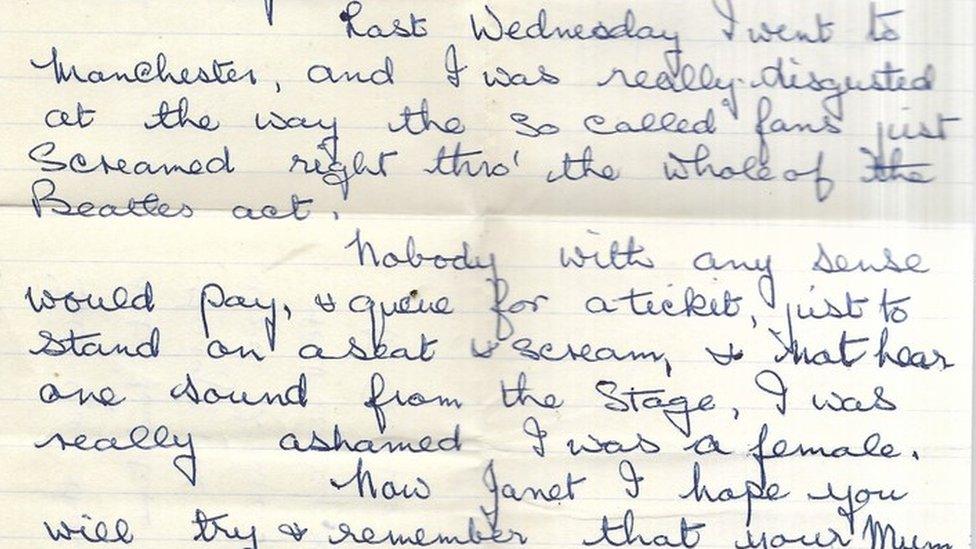 Last Wednesday I went to
Manchester, and I was really disgusted
at the way the so called fans just
Screamed right thro' the whole of the
Beatles act.
Nobody with any sense
would pay, & queue for a ticket, just to
stand on a seat & scream, & not hear
one sound from the Stage, I was
really ashamed I was a female.
Now Janet I hope you
will try & remember that your Mum